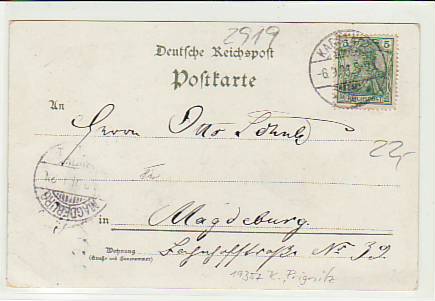 2919
Deutsche Reichspost
Postkarte
5
An
Herrn Otto Schulz
22,-
MAGDEBURG
in Magdeburg.
Wohnung
(Straße und Hausnummer)
Bahnhofstraße No 39.
19357 K. Prignitz